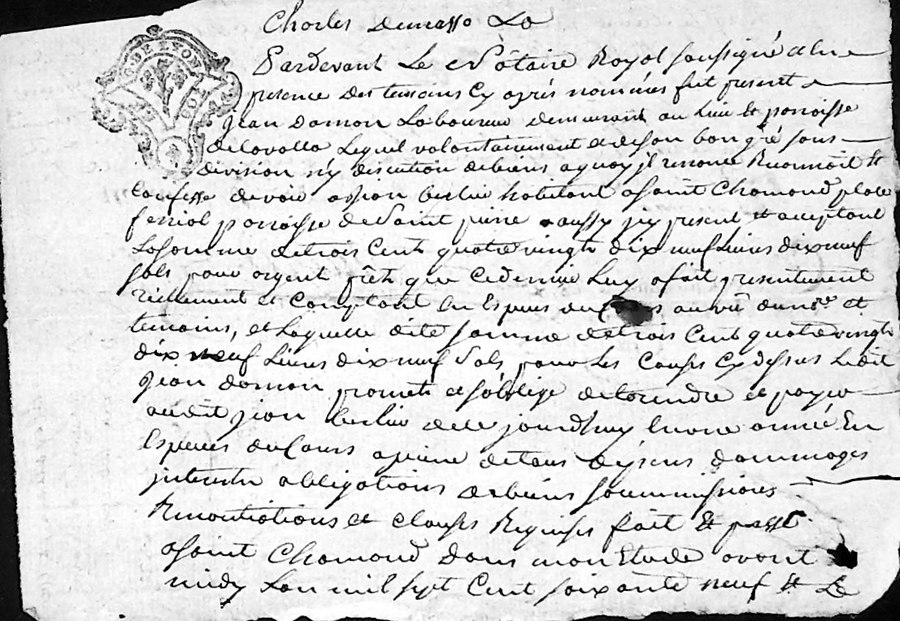 Charles demasso
G. DE LYON
Pardevant Le Notaire Royal soussigné et en
presence des temoins cy aprés nommées fut present
jean damon Laboureur demeurant au lieu et parroisse
de lavalla Lequel volontairement et de son bon gré sans
division n'y discution de biens a quoy jl renonce Reconnoit et
Confesse devoir a jean berlier habitant a saint Chamond place
ferriol parroisse de saint pierre aussy jcy present et aceptant
La somme de trois Cent quatre vingts dix neuf Livres dix neuf
sols pour argent prêté que ce dernier Luy a fait presentement
réellement et Comptant En Especes du au vû du nre et
temoins, et Laquelle dite somme de trois Cent quatre vingts
dix neuf Livres dix neuf sols pour Les Causes Cy dessus Ledit
jean damon promet et s'oblige de rendre et payer
audit jean berlier de ce jourdhuy En une année En
Especes du Cours a peine de tous depens dommages
jnterests obligations de biens soummissions
Renontiations et clauses Requises fait Et passé
a saint Chamond dans mon Etude avant
midy L'an mil sept Cent soixante neuf et Le